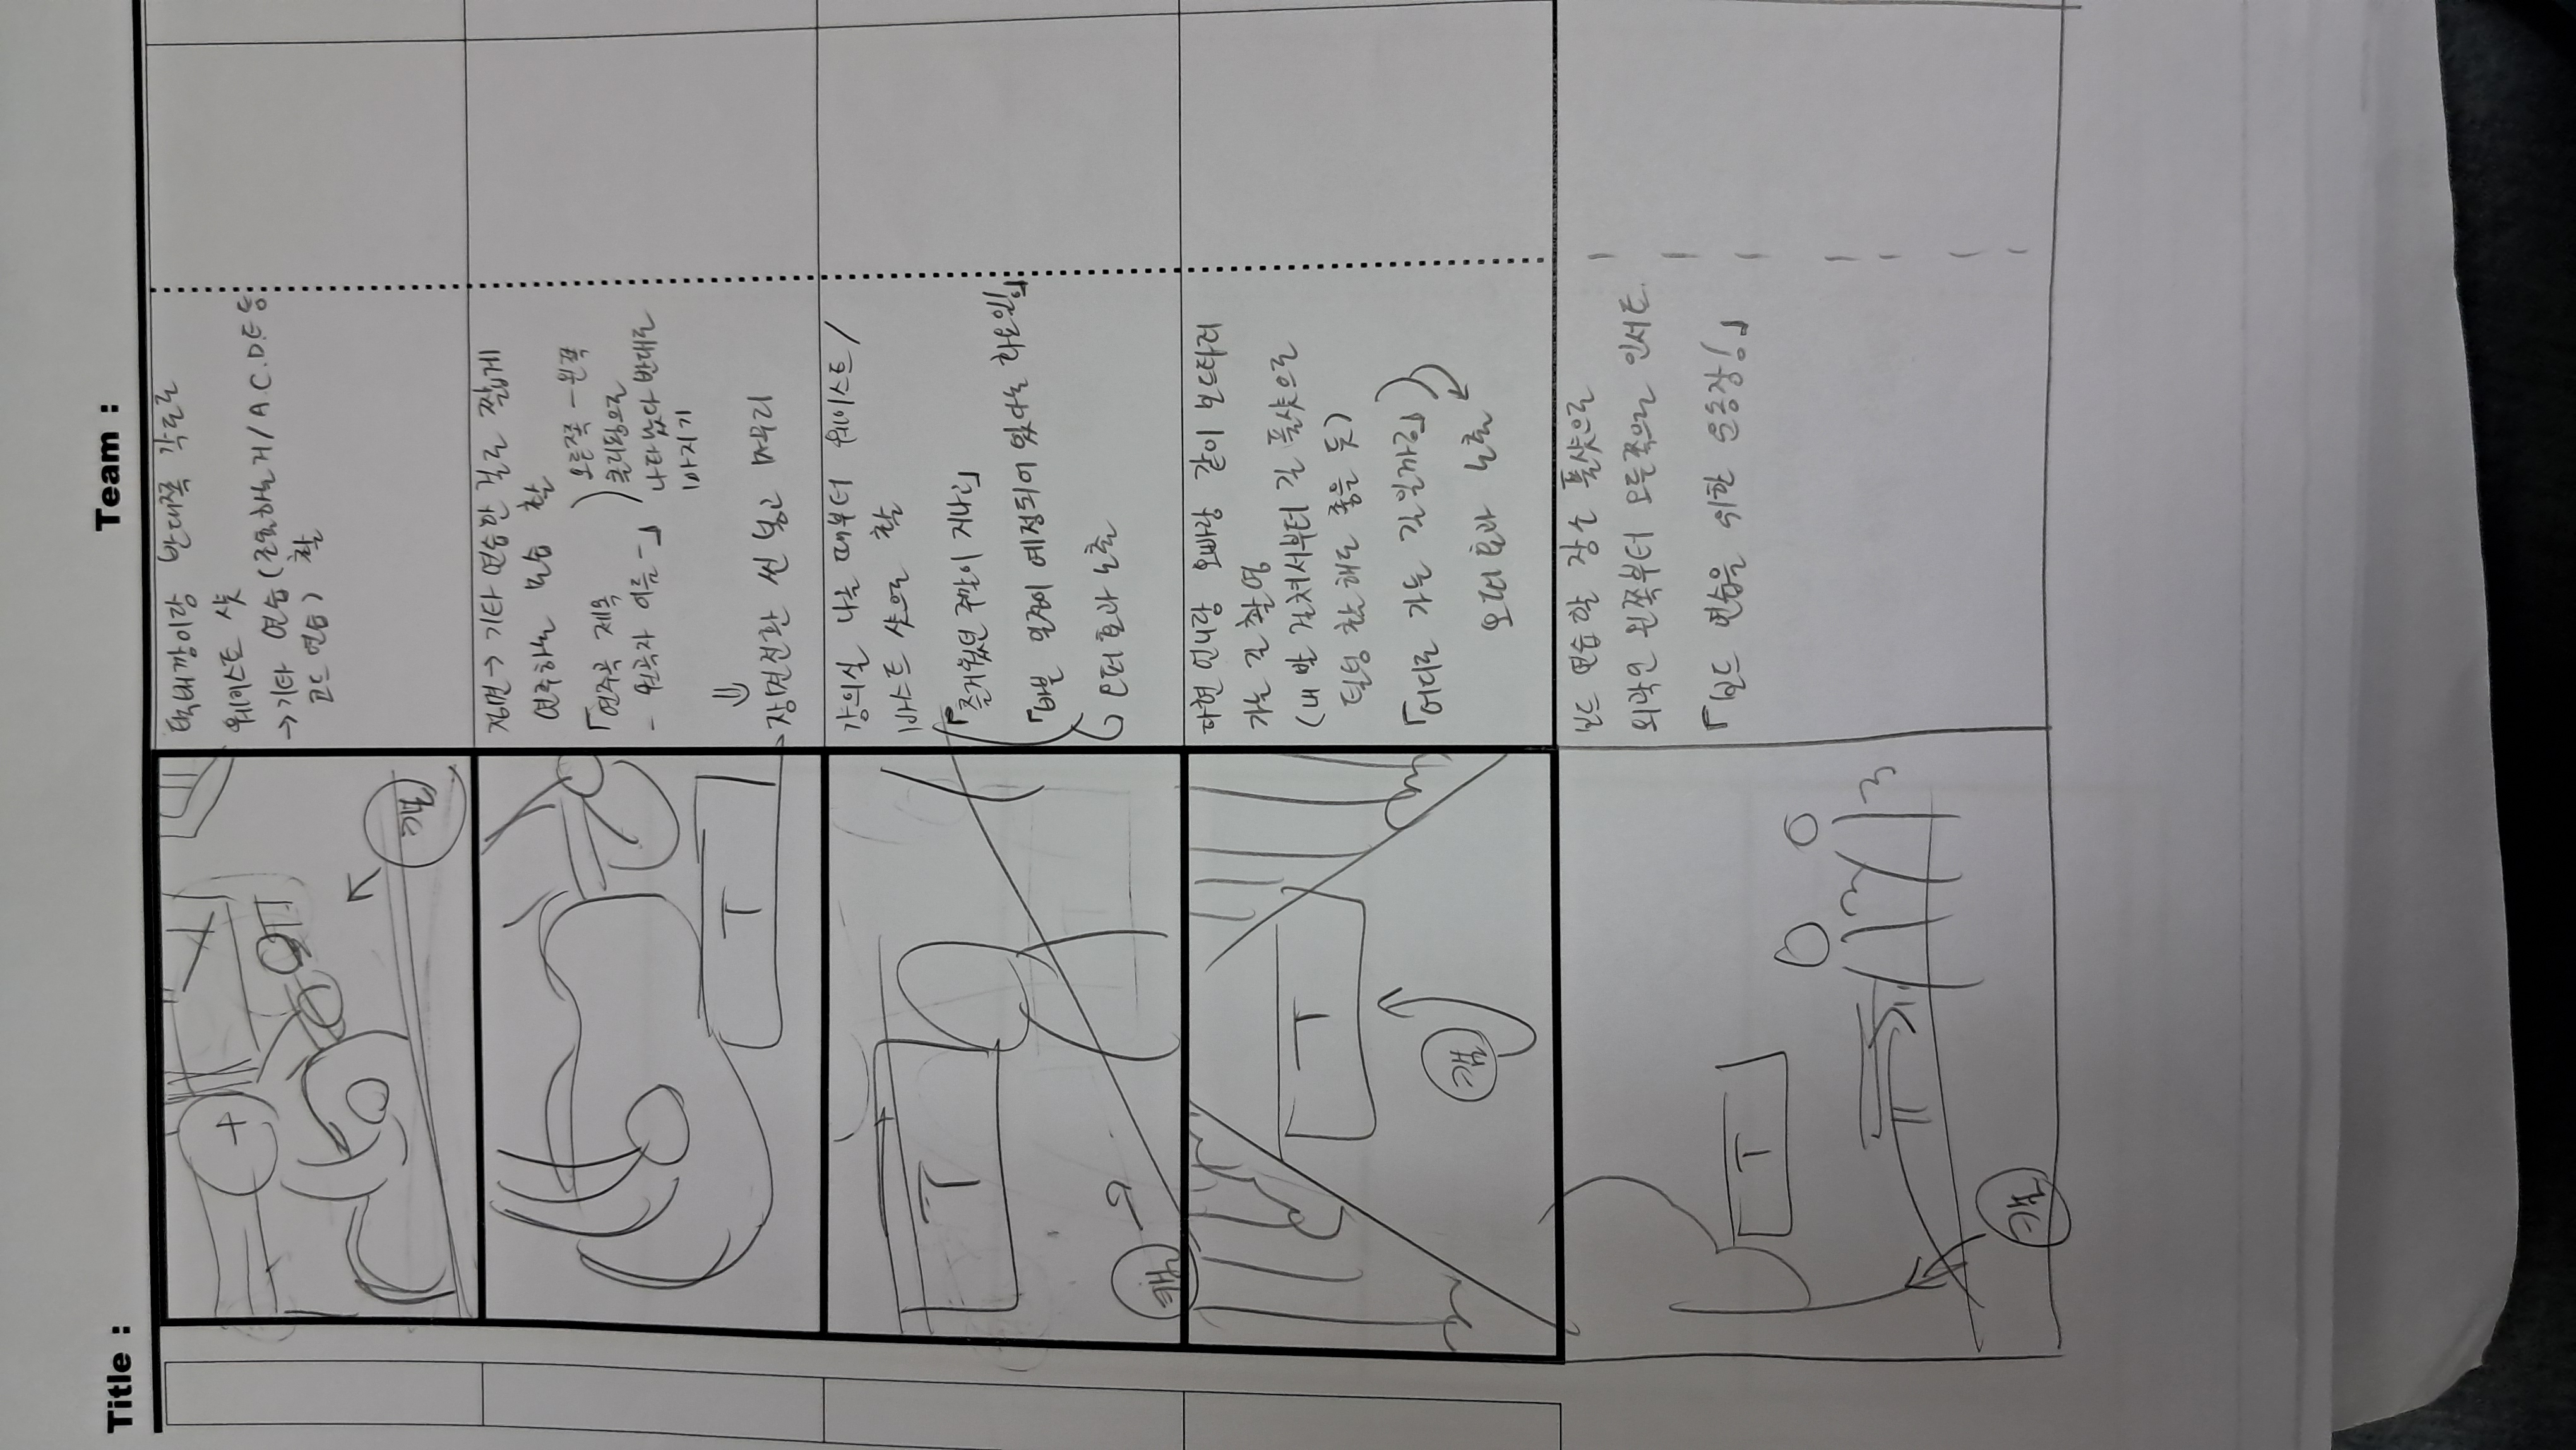 Title :
Team :
택배깡이랑 반대쪽 각도로
웨이스트 샷
→ 기타 연습 (조율하는거/A.C.D.E 등
코드 연습) 촬
캠
정면 → 기타 연습한 걸로 짧게
연주하는 모습 촬
「연주곡 제목
- 원곡자 이름 -」
오른쪽 - 왼쪽
클리핑으로
나타났다 반대로
빠지기
T
⇓
장면전환 씬 넣고 마무리
강의실 나올 때부터 웨이스트/
바스트 샷으로 촬
T
「즐거웠던 주말이 지나고」
「바쁜 일정이 예정되어 있다는 화요일!」
오퍼 효과 노출
캠
다현 언니랑 오빠랑 같이 보드타러
가는 길 촬영
(내 발 걸쳐서부터 길 풀샷으로
틸팅 촬 해도 좋을 듯)
T
「어디로 가는 길일까요」
캠
오퍼 효과 노출
보드 연습할 장소 풀샷으로
외곽인 왼쪽부터 오른쪽으로 인서트.
「보드 연습을 위한 운동장!」
T
캠